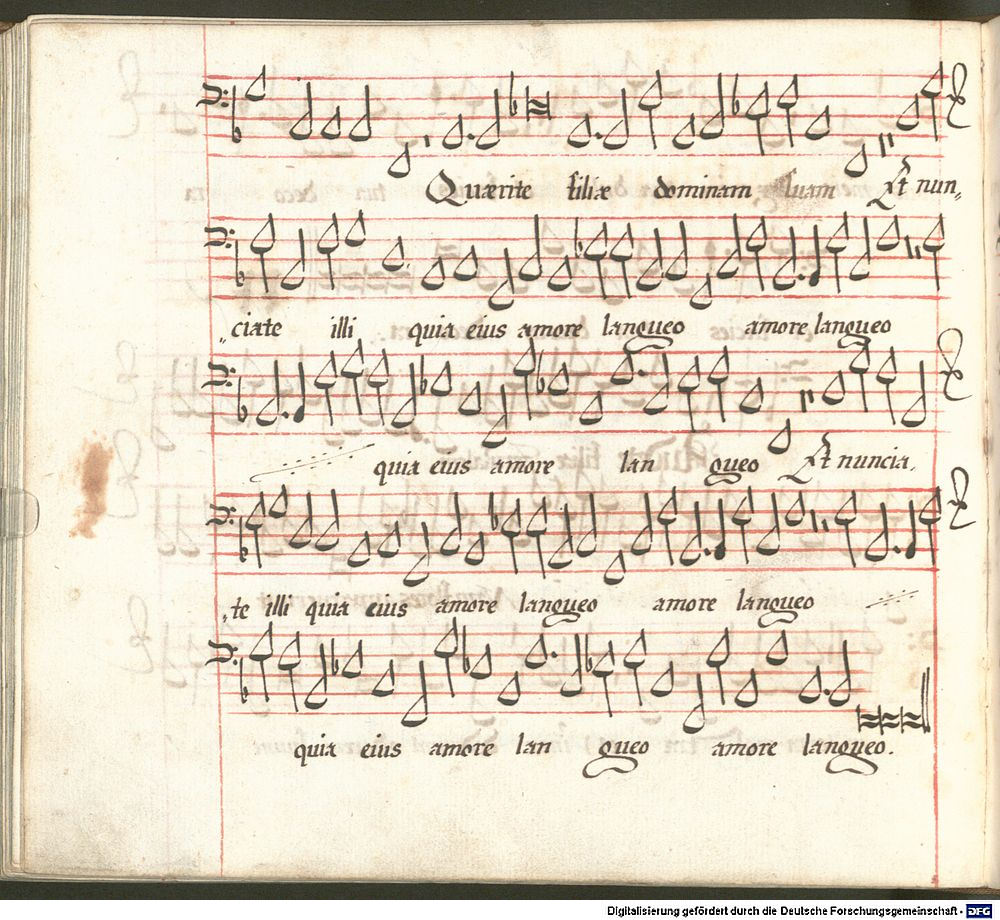 Quærite filiæ dominam suam Et nun-
ciate illi quia eius amore langueo amore langueo
quia eius amore lan gueo Et nuncia,
te illi quia eius amore langueo amore langueo
quia eius amore lan gueo amore langueo.
Digitalisierung gefördert durch die Deutsche Forschungsgemeinschaft - DFG